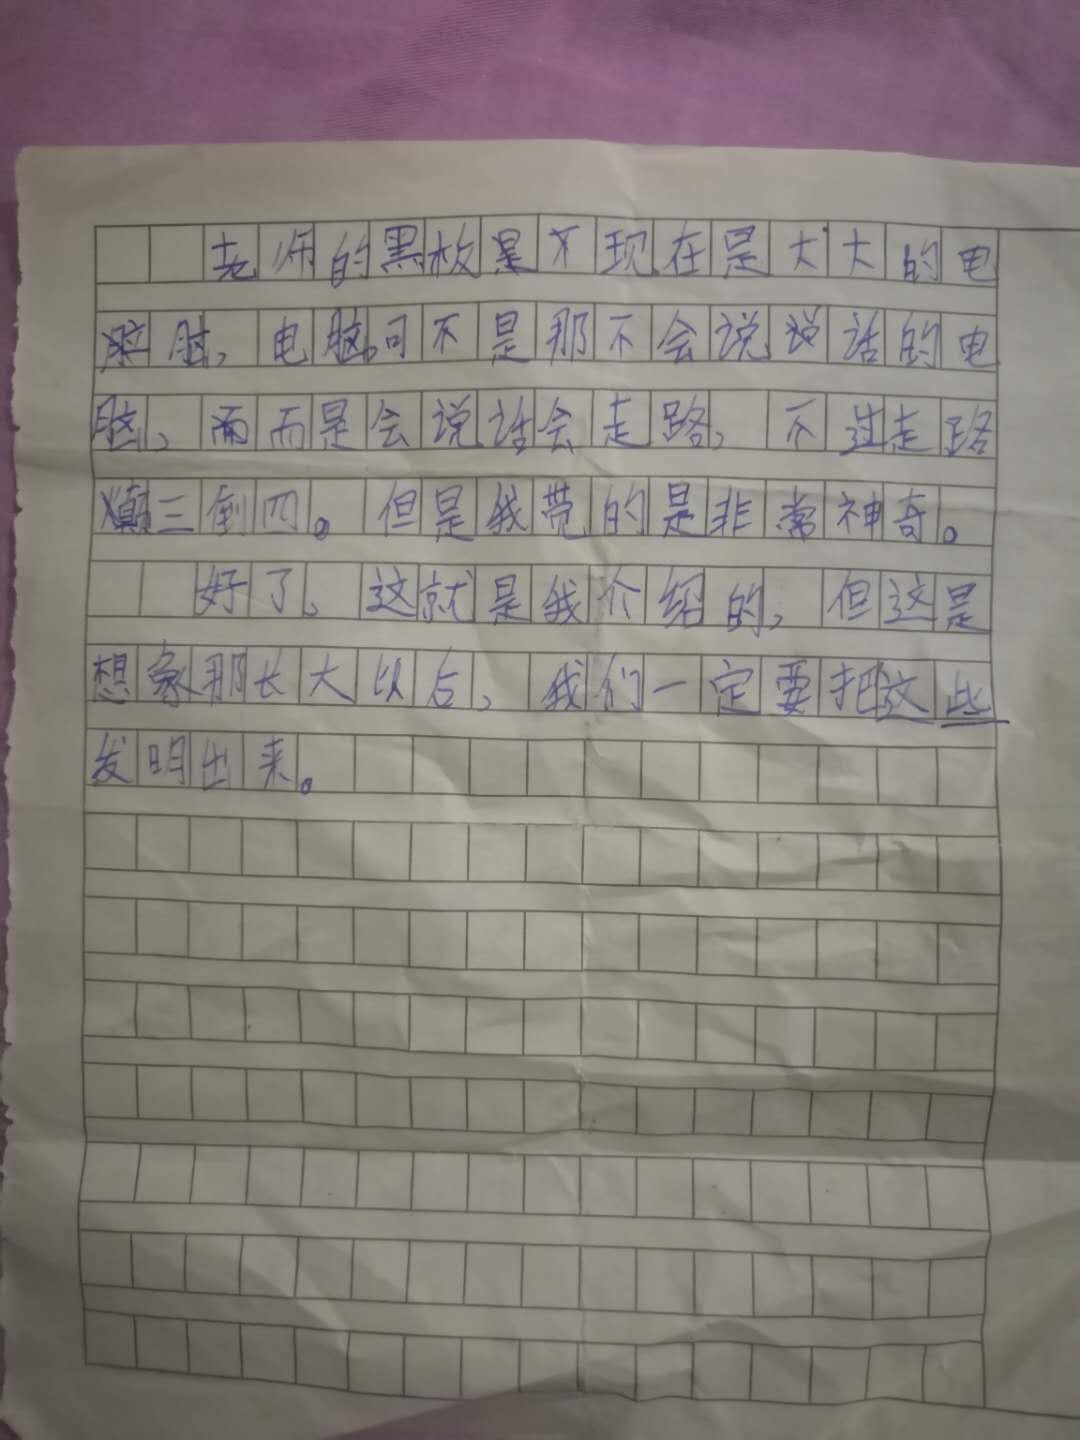 老师的黑板是不现在是大大的电
脑,电脑可不是那不会说说话的电
脑,而而是会说话会走路,不过走路
颠三倒四。但是我觉的是非常神奇。
好了,这就是我介绍的,但这是
想象那长大以后,我们一定要把这些
发明出来。